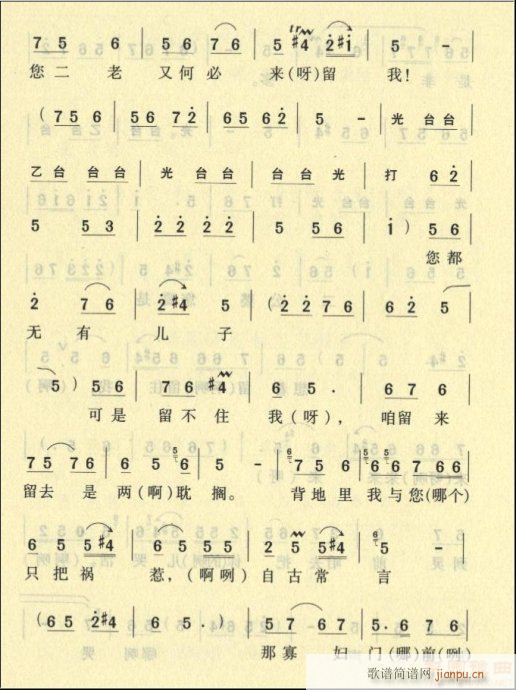 7 5 6 | 5 6 7 6 | 5 #4 2 #i | 5 - |
您 二 老 又 何 必 来 (呀) 留 我!
( 7 5 6 | 5 6 7 2 | 6 5 6 2 | 5 - | 光 台 台 |
乙 台 台 台 | 光 台 台 | 台 台 光 | 打 6 2 |
5 5 3 | 2 2 2 2 | 5 5 6 | i ) 5 6 |
您 都
2 7 6 | 2 #4 5 | ( 2 2 7 6 | 6 2 5 |
无 有 儿 子
5 ) 5 6 | 7 6 #4 | 6 5 . | 6 7 6 |
可 是 留 不 住 我 (呀), 咱 留 来
7 5 7 6 | 6 5 6 | 5 - | 5 6 | 6 6 7 6 6 |
留 去 是 两 (啊) 耽 搁。 背 地 里 我 与 您 (哪 个)
6 5 5 #4 | 5 5 5 | 2 5 5 #4 | 5 - |
只 把 祸 惹, (啊 咧) 自 古 常 言
( 6 5 2 #4 | 6 5 . ) | 5 7 6 7 | 5 . 6 7 6 |
那 寡 妇 门 (哪) 前 (咧)
歌谱简谱网
jianpu.cn